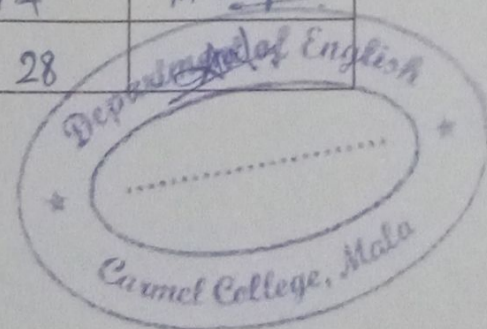 28
Department of English
Carmel College, Mala